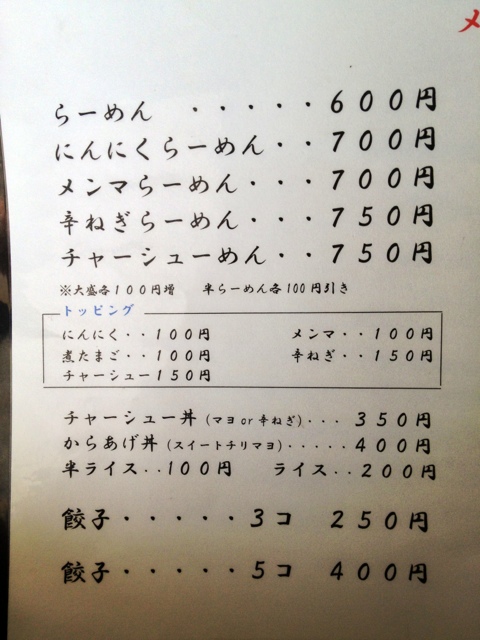 メ
らーめん ・・・・・600円
にんにくらーめん・・700円
メンマらーめん・・・700円
辛ねぎらーめん・・・750円
チャーシューめん・・750円
※大盛各100円増 半らーめん各100円引き
トッピング
にんにく・・100円 メンマ・・100円
煮たまご・・100円 辛ねぎ・・150円
チャーシュー150円
チャーシュー丼(マヨor辛ねぎ)・・・350円
からあげ丼(スイートチリマヨ)・・・・・400円
半ライス・・100円 ライス・・200円
餃子・・・・・3コ 250円
餃子・・・・・5コ 400円